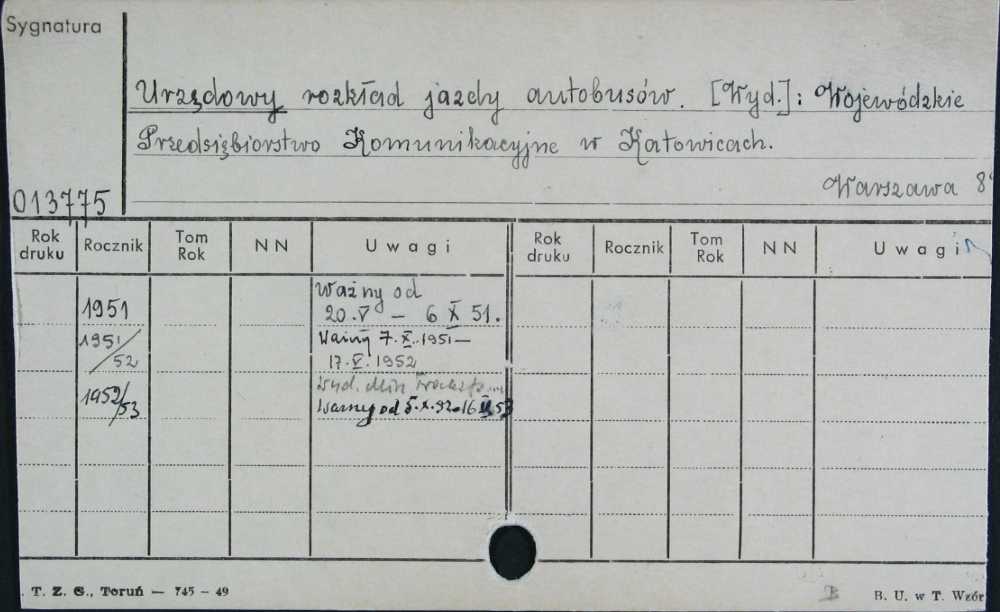 Sygnatura
Urzędowy rozkład jazdy autobusów. [Wyd.]: Wojewódzkie
Przedsiębiorstwo Komunikacyjne w Katowicach.
Warszawa 8°
013775
Rok druku Rocznik Tom Rok NN Uwagi Rok druku Rocznik Tom Rok NN Uwagi
1951 Ważny od
20.V — 6 X 51.
1951/52 Ważny 7.X.1951 —
17.V.1952
1952/53 Wyd. Min
Ważny od 5.X.52 - 16 53
T. Z. G., Toruń — 745 - 49
B. U. w T. Wzór